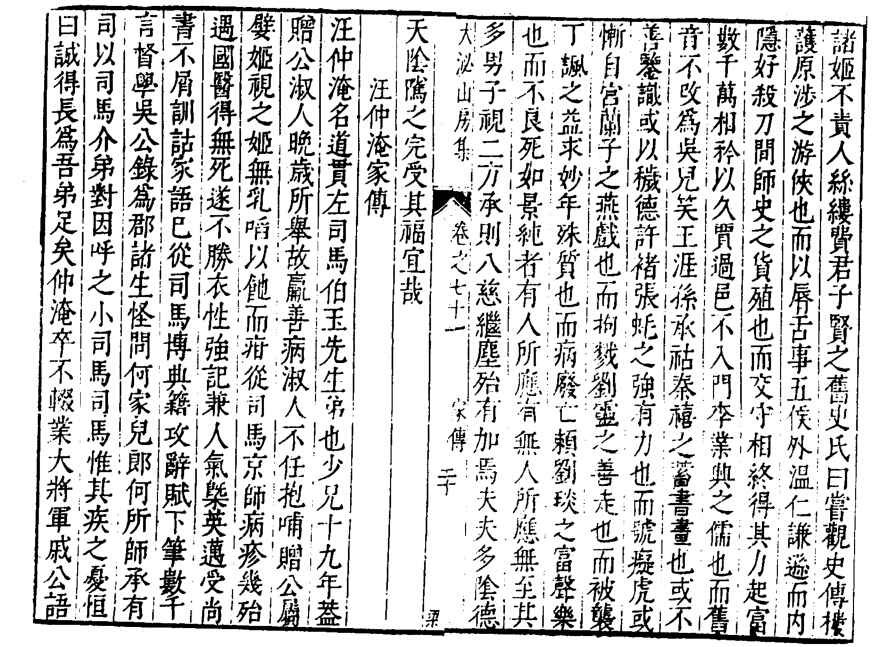 諸姬不責人絲縷費君子賢之舊史氏曰嘗觀史傳樓
護原涉之游俠也而以辱舌事五侯外溫仁謙遜而內
隱好殺刀間師史之貨殖也而交守相終得其力起富
數千萬相矜以久賈過邑不入門李業典之儒也而舊
音不改為吳兒笑王涯孫承祜秦禧之蓄書畫也或不
善鑒識或以穢德許褚張蚝之強有力也而號癡虎或
慚自宮蘭子之燕戲也而拘戮劉靈之善走也而被襲
丁諷之益求妙年殊質也而病廢亡賴劉琰之富聲樂
也而不良死如景純者有人所應有無人所應無至其
多男子視二方承則八慈繼塵殆有加焉夫夫多陰德
大泌山房集
卷之七十一
家傳
二十
天陰隲之完受其福宜哉
汪仲淹家傳
汪仲淹名道貫左司馬伯玉先生弟也少兄十九年葢
贈公淑人晚歲所舉故羸善病淑人不任抱哺贈公屬
嬖姬視之姬無乳啗以飴而疳從司馬京師病疹幾殆
遇國醫得無死遂不勝衣性強記兼人氣槩英邁受尚
書不屑訓詁家語已從司馬博典籍攻辭賦下筆數千
言督學吳公錄為郡諸生怪問何家兒郎何所師承有
司以司馬介弟對因呼之小司馬司馬惟其疾之憂恒
曰誠得長為吾弟足矣仲淹卒不輟業大將軍戚公語
梁